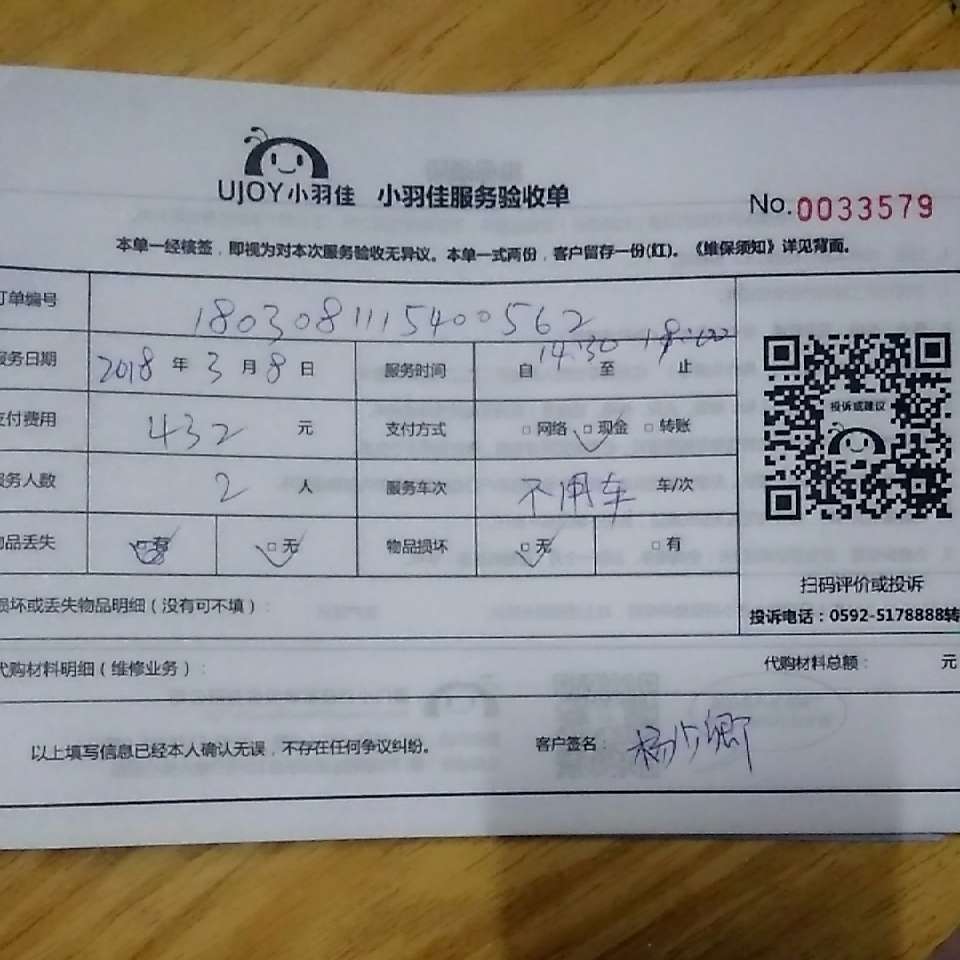 UJOY小羽佳 小羽佳服务验收单
No.0033579
本单一经核签，即视为对本次服务验收无异议。本单一式两份，客户留存一份(红)。《维保须知》详见背面。
订单编号 1803081115400562
服务日期 2018 年 3 月 8 日 服务时间 自 14:30 至 18:00 止
支付费用 432 元 支付方式 □网络 □现金 □转账
服务人数 2 人 服务车次 不用车 车/次
物品丢失 □有 □无 物品损坏 □无 □有
投诉或建议
扫码评价或投诉
损坏或丢失物品明细（没有可不填）：
投诉电话：0592-5178888转
代购材料明细（维修业务）：
代购材料总额： 元
以上填写信息已经本人确认无误，不存在任何争议纠纷。 客户签名：